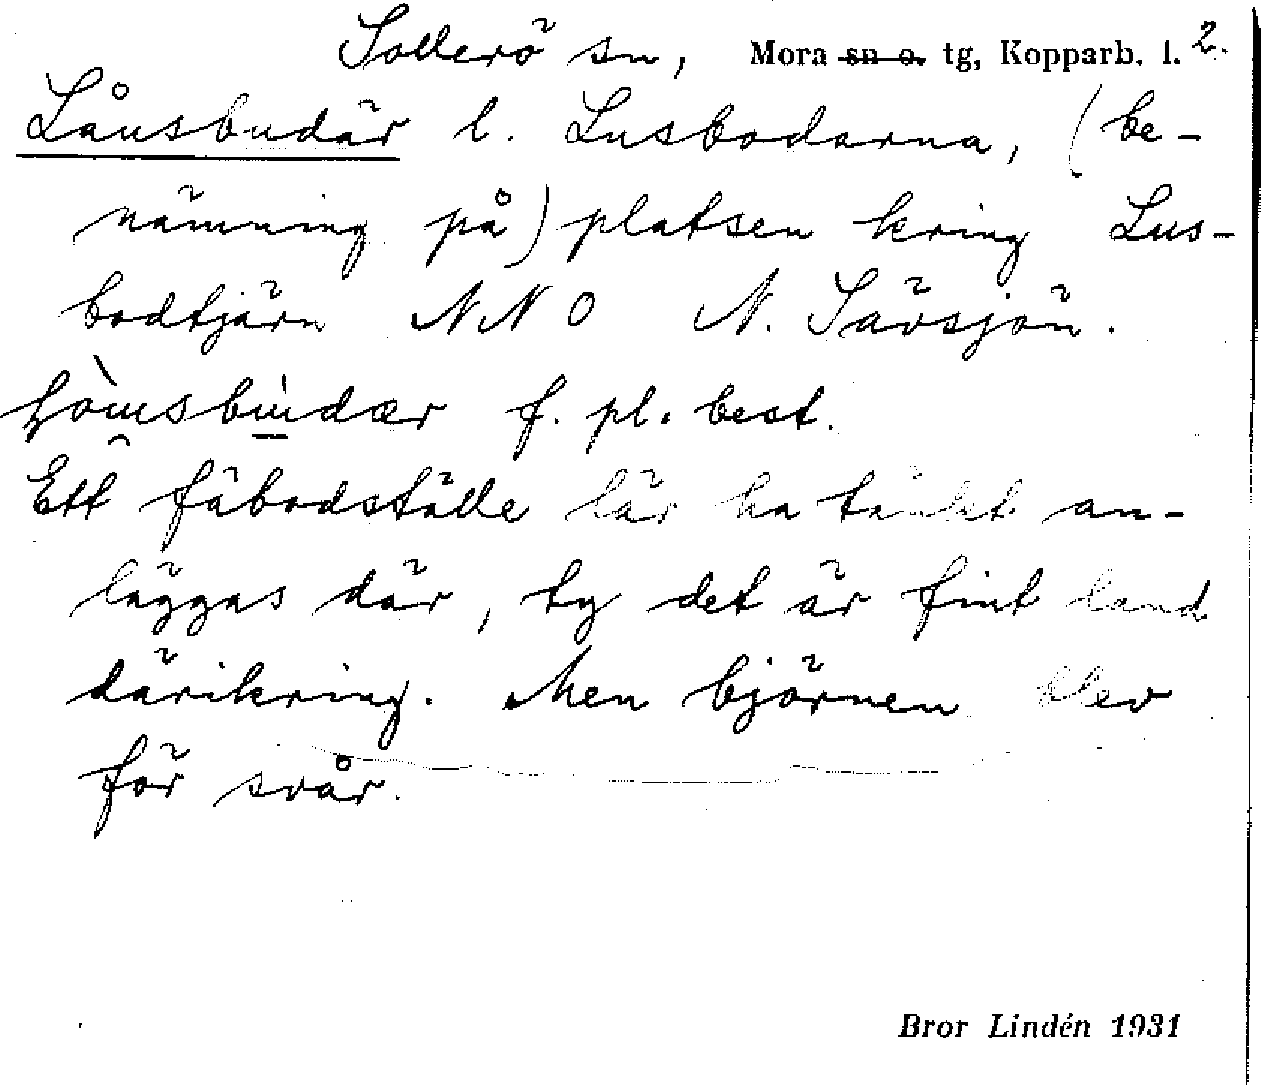 Sollerö sn, Mora sn o. tg, Kopparb. l. 2.
Låusbudär l. Lusbodarna, (be-
nämning på) platsen kring Lus-
bodtjärn NNO N. Sävsjön.
f. pl. best.
Ett fäbodställe lär ha tänkt an-
läggas där, ty det är fint land
därikring. Men björnen blev
för svår.
Bror Lindén 1931